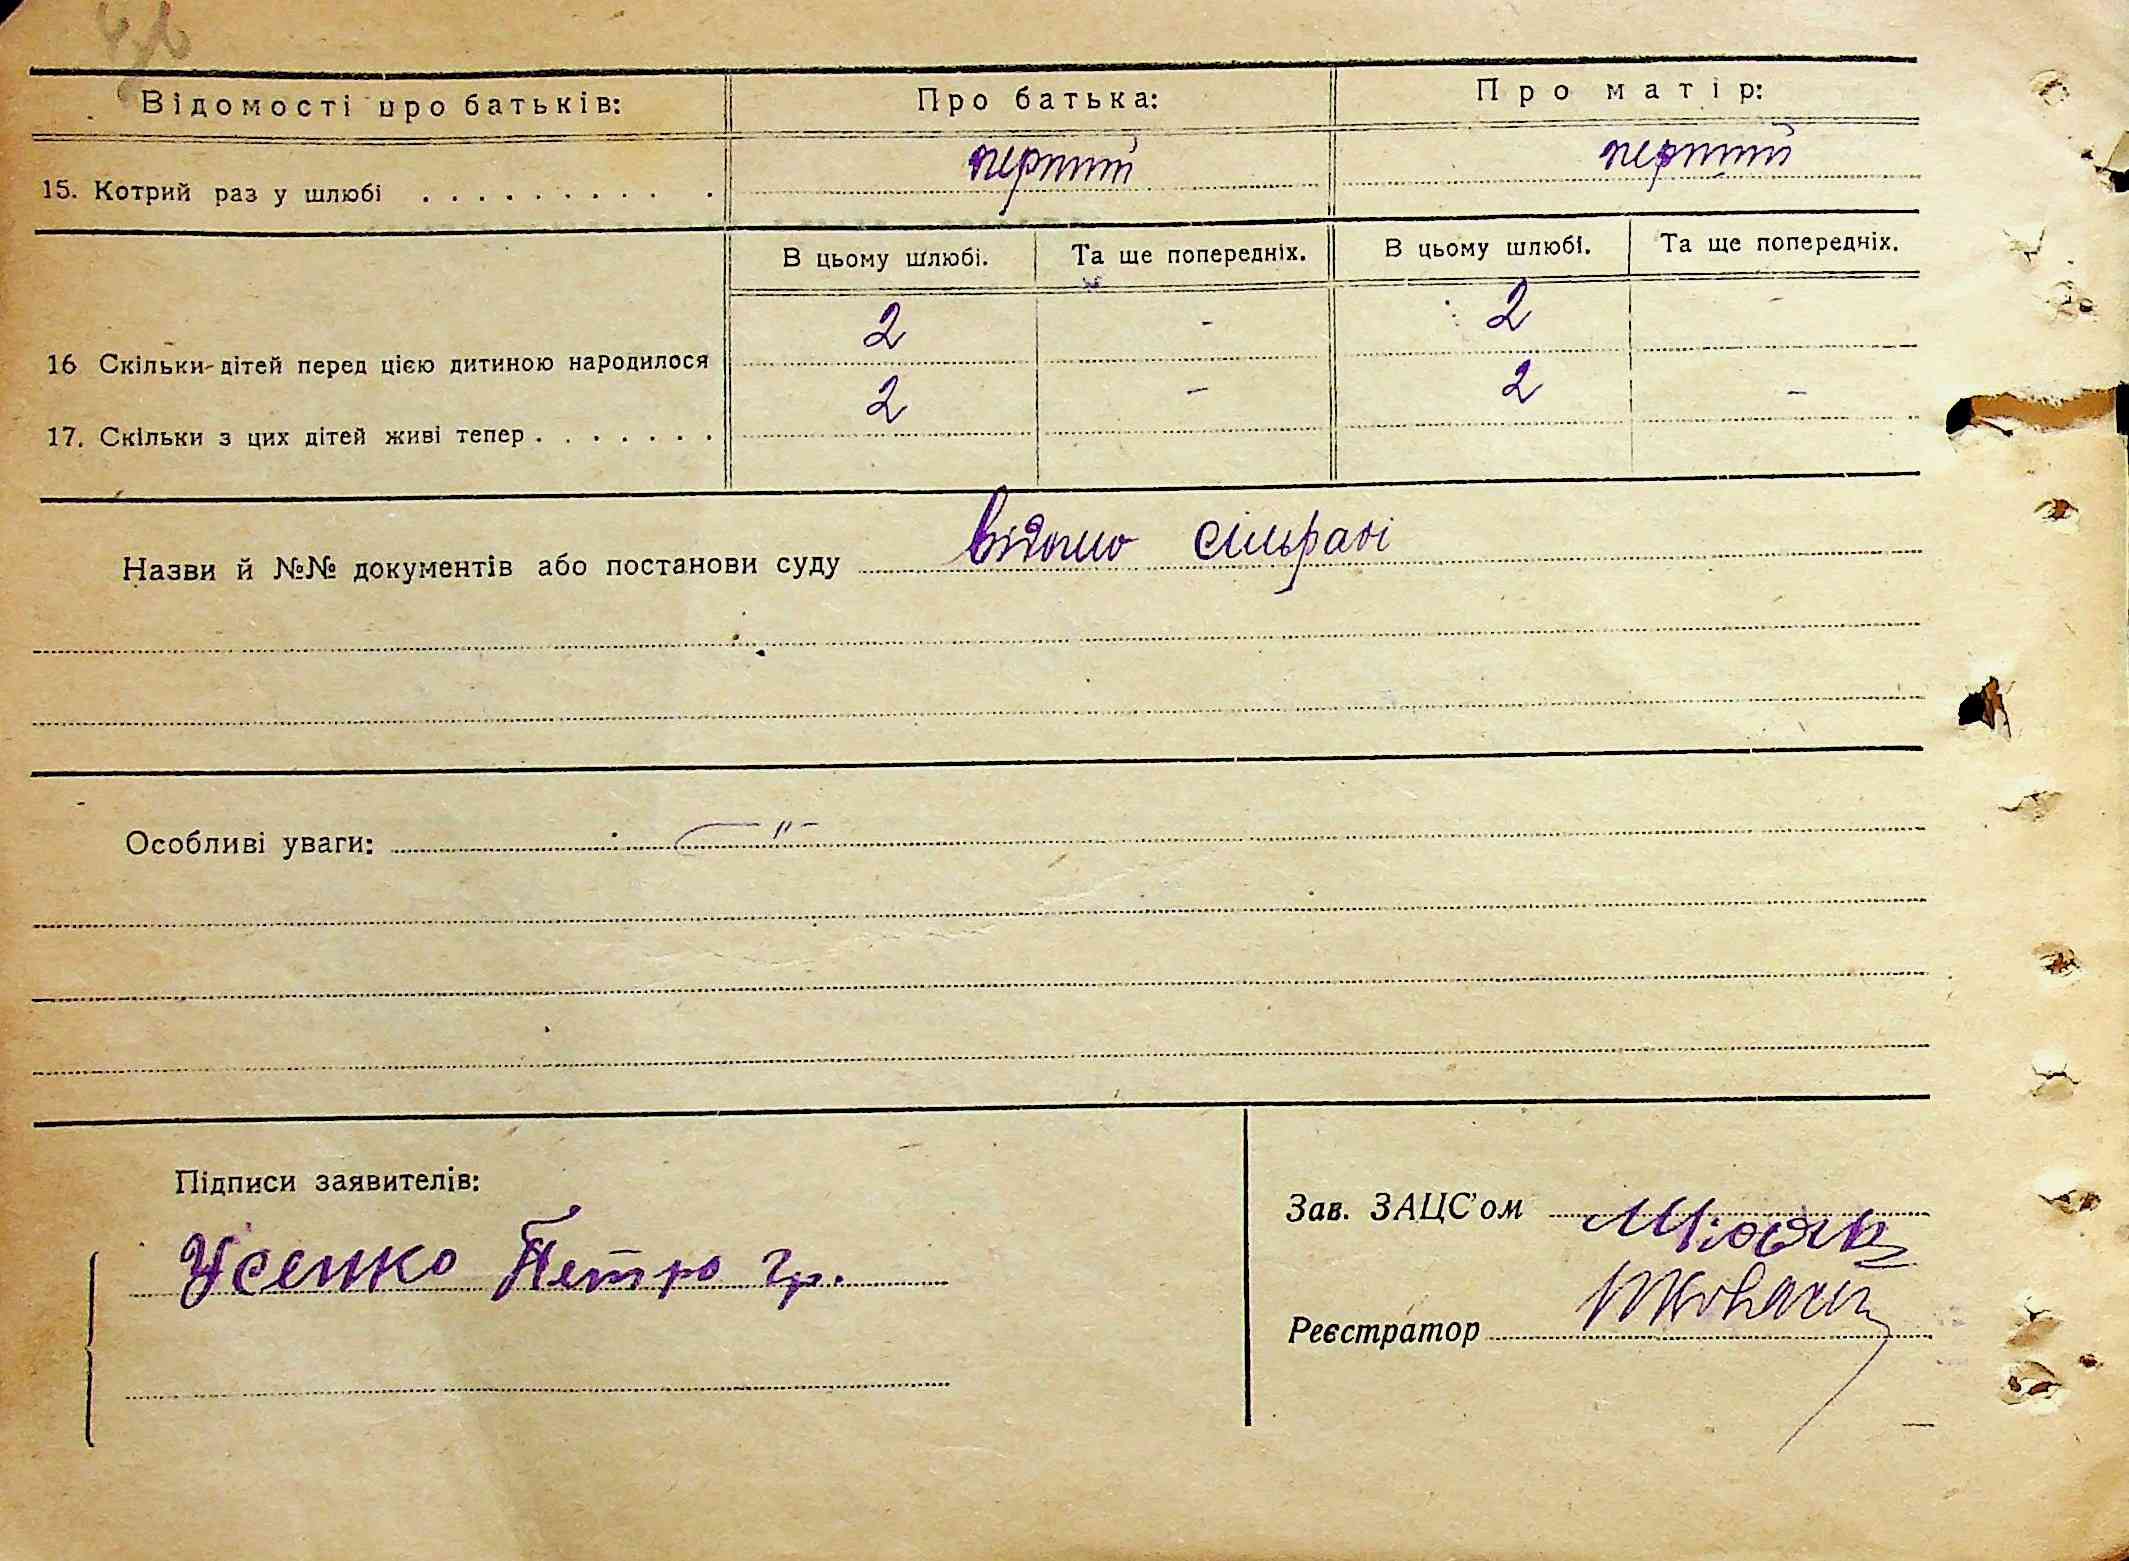 Відомості про батьків: Про батька: Про матір:
15. Котрий раз у шлюбі . . . . . . . . . . . перший перший
В цьому шлюбі. Та ще попередніх. В цьому шлюбі. Та ще попередніх.
16 Скільки дітей перед цією дитиною народилося 2 - 2 -
17. Скільки з цих дітей живі тепер . . . . . . . 2 - 2 -
Назви й №№ документів або постанови суду відомо сільраді
Особливі уваги: — " —
Підписи заявителів:
Зав. ЗАЦС'ом
Усенко Петро Гр.
Реєстратор